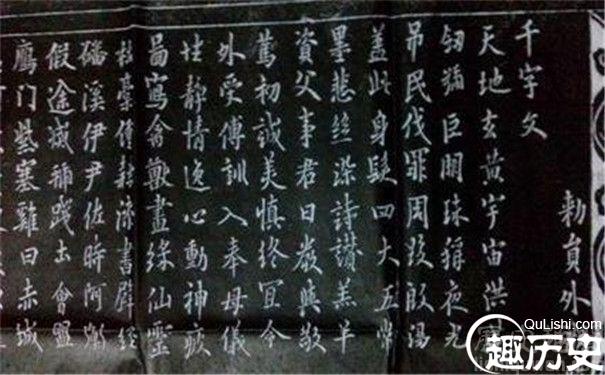 勅員外
千字文
天地玄黃宇宙洪
劍號巨闕珠稱夜光
弔民伐罪周發殷湯
蓋此身髮四大五常
墨悲絲染詩讚羔羊
資父事君曰嚴與敬
篤初誠美慎終宜令
外受傅訓入奉母儀
性靜情逸心動神疲
圖寫禽獸畫綵仙靈
杜稾鍾隸漆書壁經
磻溪伊尹佐時阿衡
假途滅虢踐土會盟
鴈門紫塞雞田赤城
QuLishi.com
趣历史